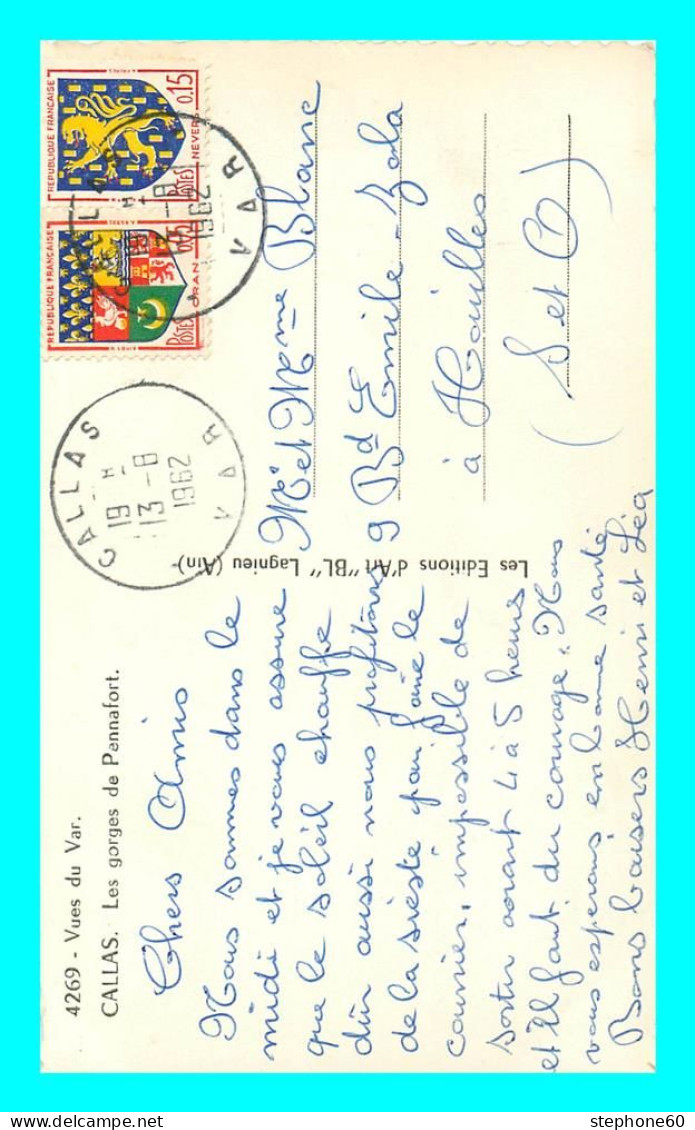 4269 - Vues du Var.
CALLAS. Les gorges de Pennafort.
Chers Amis
Nous sommes dans le
midi et je vous assure
que le soleil chauffe
dur aussi nous profitons
de la sièste pour faire le
courrier, impossible de
sortir avant 4 à 5 heures
et il faut du courage. Nous
vous esperons en bonne santé
Bons baisers Henri et Léa
Les Editions d'Art "BL" Lagnieu (Ain)
CALLAS
19 H
13 - 8
1962
VAR
REPUBLIQUE FRANÇAISE
0.05
POSTES ORAN
REPUBLIQUE FRANÇAISE
0.15
POSTES NEVERS
13 - 8
1962
VAR
Mr et Mme Blanc
9 Bd Emile-Zola
à Houilles
(S et O)
stephone60